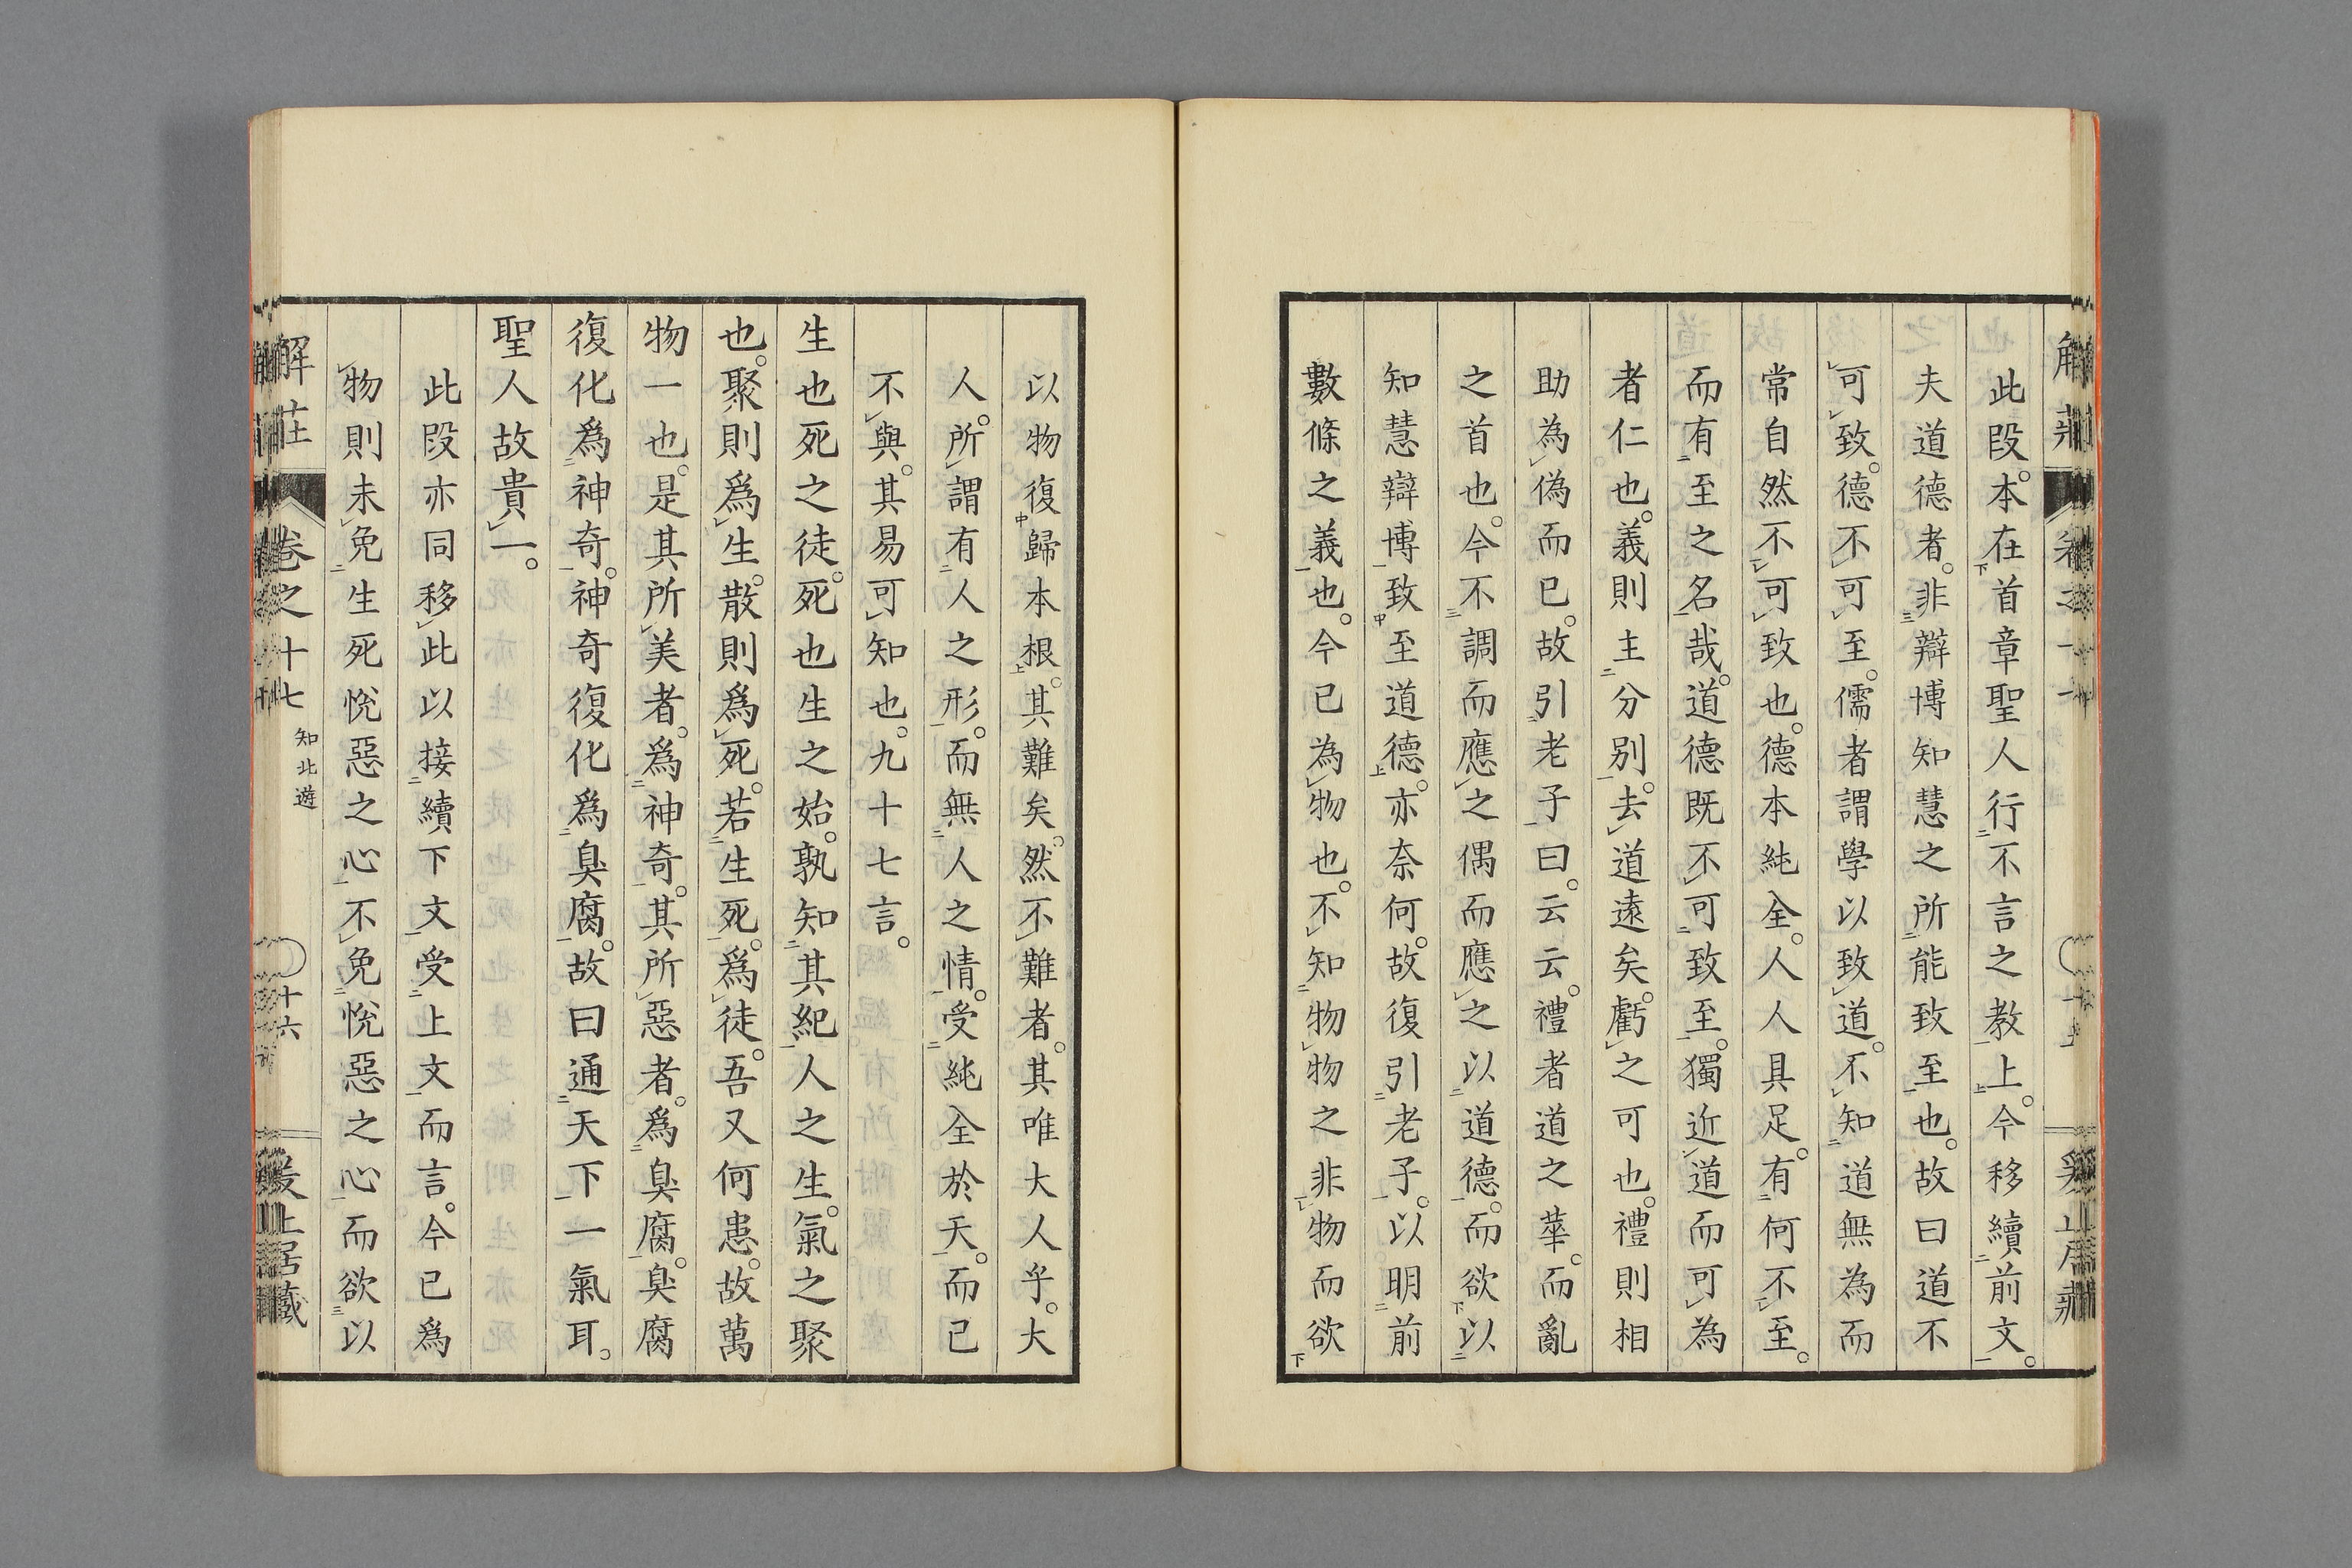 此段。本在首章聖人行不言之教上。今移續前文。
夫道德者。非辯博知慧之所能致至也。故曰道不
可致。德不可至。儒者謂學以致道。不知道無為而
常自然不可致也。德本純全。人人具足。有何不至。
而有至之名哉。道德既不可致至。獨近道而可為
者仁也。義則主分別。去道遠矣。虧之可也。禮則相
助為偽而已。故引老子曰。云云。禮者道之華。而亂
之首也。今不調而應之偶而應之以道德。而欲以
知慧辯博致至道德。亦奈何。故復引老子。以明前
數條之義也。今已為物也。不知物物之非物而欲
以物復歸本根。其難矣。然不難者。其唯大人乎。大
人。所謂有人之形。而無人之情。受純全於天。而已
不與。其易可知也。九十七言。
生也死之徒。死也生之始。孰知其紀。人之生。氣之聚
也。聚則爲生。散則爲死。若生死。爲徒。吾又何患。故萬
物一也。是其所美者。爲神奇。其所惡者。爲臭腐。臭腐
復化爲神奇。神奇復化爲臭腐。故曰通天下一氣耳。
聖人故貴一。
此段亦同移此以接續下文受上文而言。今已爲
物則未免生死悅惡之心不免悅惡之心而欲以
解莊 卷之十七 知北遊 十六